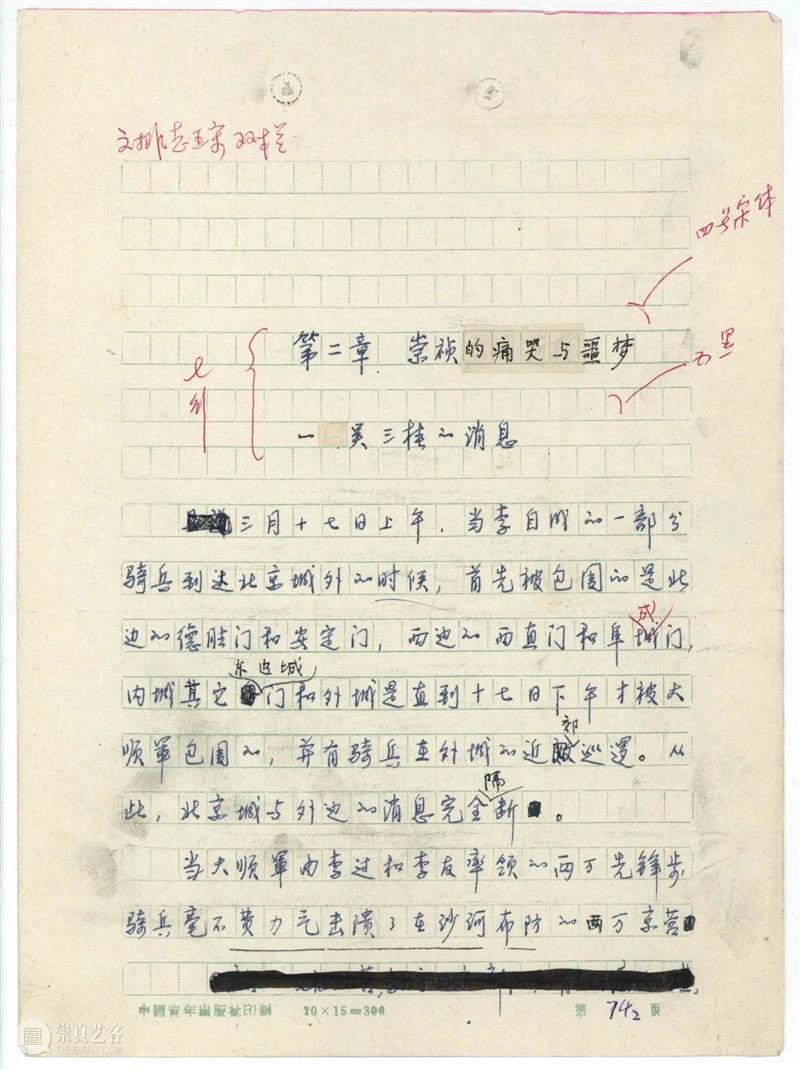 文排老五宋 双栏
四号宋体
第二章 崇祯的痛哭与噩梦
七行
方黑
一 吴三桂的消息
三月十七日上午,当李自成的一部分
骑兵到达北京城外的时候,首先被包围的是北
边的德胜门和安定门,西边的西直门和阜成门,
内城其它东边城门和外城是直到十七日下午才被大
顺军包围的,并有骑兵在外城的近郊巡逻。从
此,北京城与外边的消息完全隔断。
当大顺军由李过和李友率领的两万先锋步
骑兵毫不费力气击溃了在沙河布防的两万京营
中國青年出版社印制 20×15=300 第742页
崇真艺客